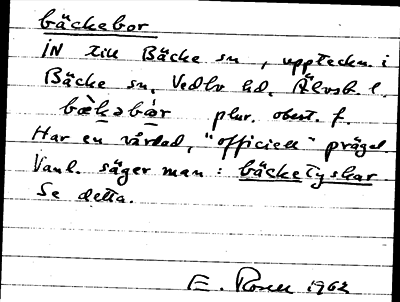 bäckebor
IN till Bäcke sn, uppteckn. i
Bäcke sn. Vedbo hd. Älvsb. l.
bæ̀kəbár plur. obest. f.
Har en vårdad, "officiell" prägel.
Vanl. säger man: bäcketyskar.
Se detta.
E. Rosell 1962